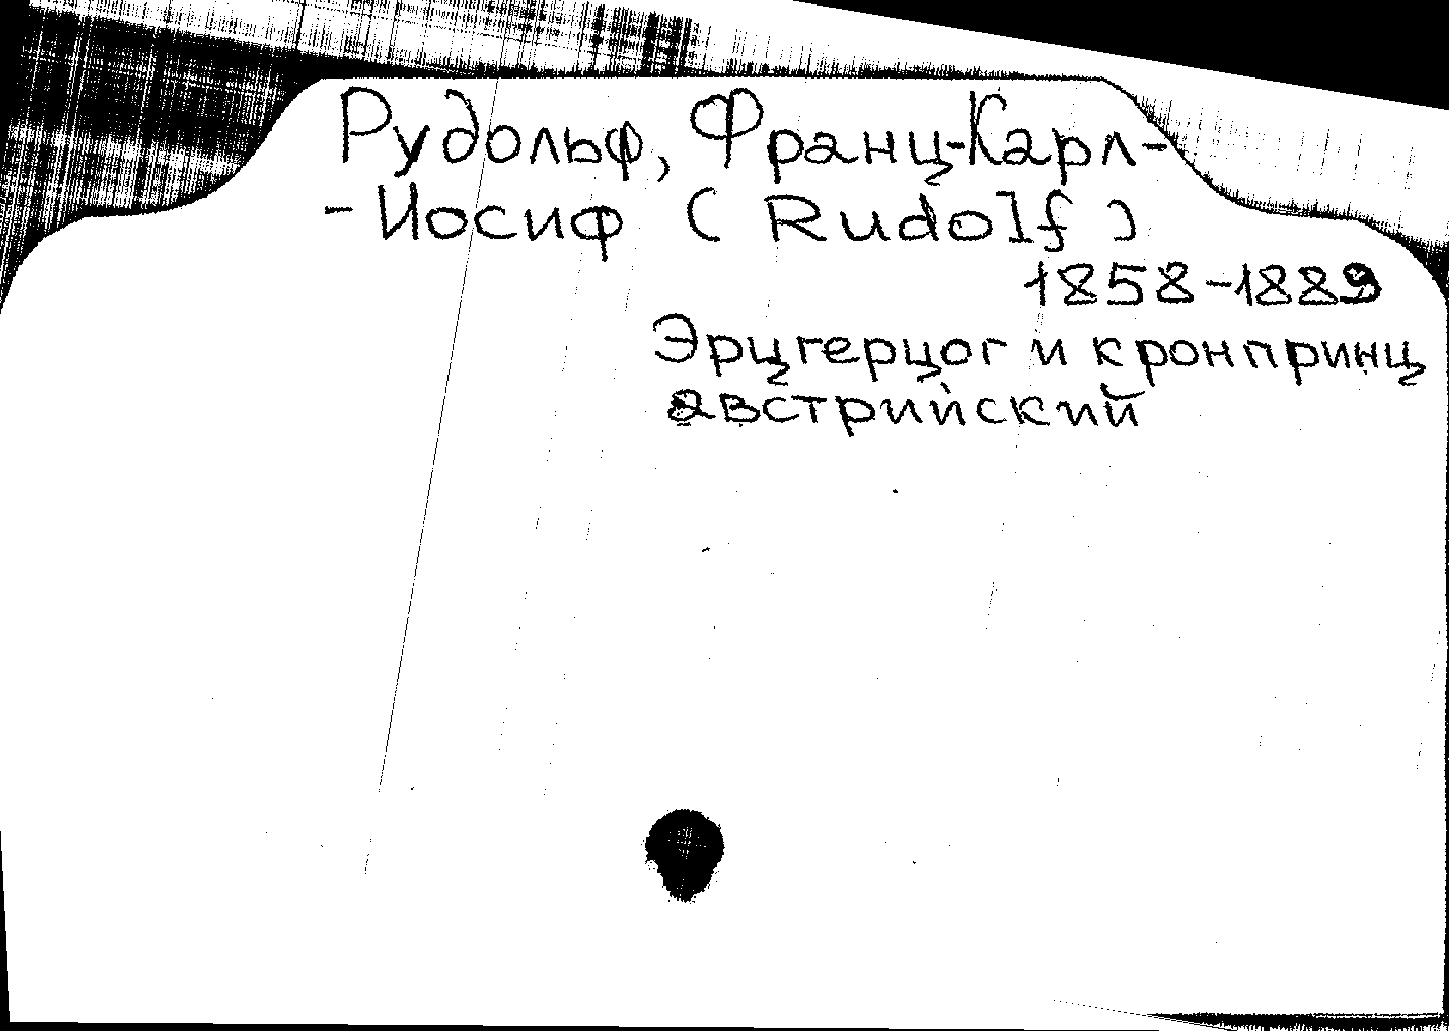 Рудольф, Франц-Карл-
-Иосиф (Rudolf)
1858-1889
Эрцгерцог и кронпринц
австрийский